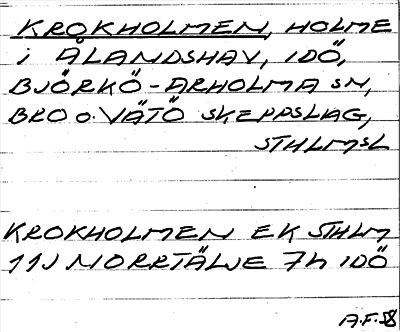 KROKHOLMEN, HOLME
i ÅLANDSHAV, IDÖ,
BJÖRKÖ-ARHOLMA SN,
BRO o. VÄTÖ SKEPPSLAG,
STHLMSL
KROKHOLMEN EK STHLM
11J NORRTÄLJE 7h IDÖ
A.F. 58